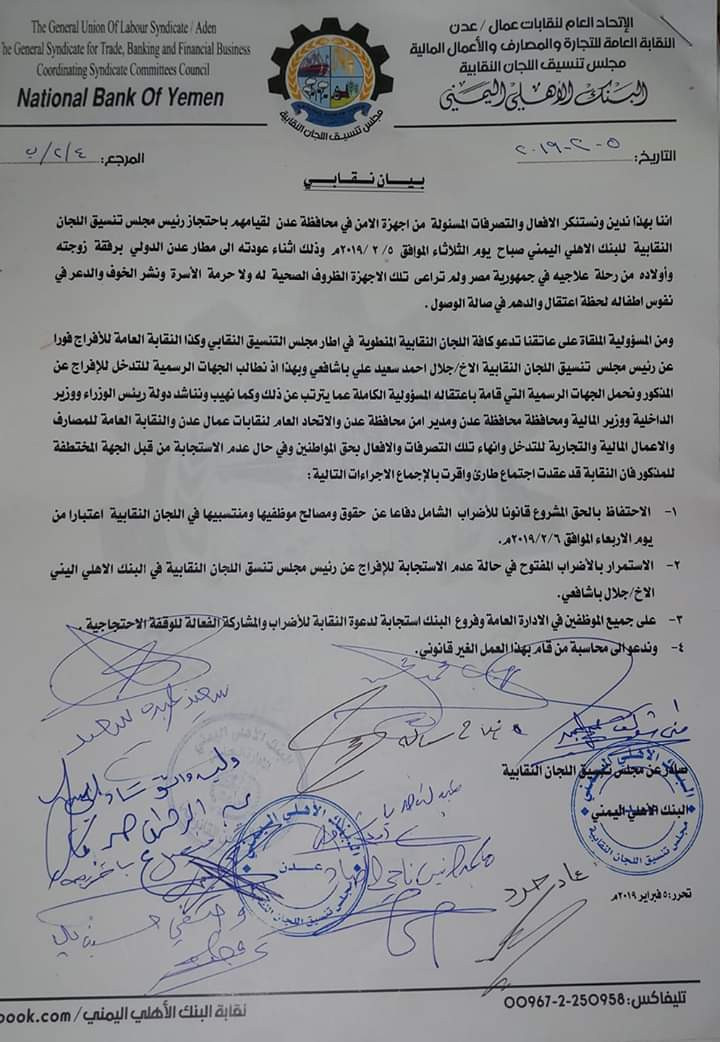 The General Union Of Labour Syndicate / Aden
he General Syndicate for Trade, Banking and Financial Business
Coordinating Syndicate Committees Council
National Bank Of Yemen
الإتحاد العام لنقابات عمال / عدن
النقابة العامة للتجارة والمصارف والأعمال المالية
مجلس تنسيق اللجان النقابية
البنك الأهلي اليمني
مجلس تنسيق اللجان النقابية
التاريخ: ٥-٢-٢٠١٩
المرجع: ٤/٢/ب
بيان نقابي
اننا بهذا ندين ونستنكر الافعال والتصرفات المسئولة من اجهزة الامن في محافظة عدن لقيامهم باحتجاز رئيس مجلس تنسيق اللجان
النقابية للبنك الاهلي اليمني صباح يوم الثلاثاء الموافق ٢/٥ /٢٠١٩م وذلك اثناء عودته الى مطار عدن الدولي برفقة زوجته
وأولاده من رحلة علاجيه في جمهورية مصر ولم تراعى تلك الاجهزة الظروف الصحية له ولا حرمة الأسرة ونشر الخوف والدعر في
نفوس اطفاله لحظة اعتقال والدهم في صالة الوصول .
ومن المسؤولية الملقاة على عاتقنا تدعو كافة اللجان النقابية المنطوية في اطار مجلس التنسيق النقابي وكذا النقابة العامة للأفراج فورا
عن رئيس مجلس تنسيق اللجان النقابية الاخ/جلال احمد سعيد علي باشافعي وبهذا اذ نطالب الجهات الرسمية للتدخل للإفراج عن
المذكور ونحمل الجهات الرسمية التي قامة باعتقاله المسؤولية الكاملة عما يترتب عن ذلك وكما نهيب ونناشد دولة رينس الوزراء ووزير
الداخلية ووزير المالية ومحافظة محافظة عدن ومدير امن محافظة عدن والاتحاد العام لنقابات عمال عدن والنقابة العامة للمصارف
والاعمال المالية والتجارية للتدخل وانهاء تلك التصرفات والافعال بحق المواطنين وفي حال عدم الاستجابة من قبل الجهة المختطفة
للمذكور فان النقابة قد عقدت اجتماع طارئ واقرت بالإجماع الاجراءات التالية :
١- الاحتفاظ بالحق المشروع قانونا للأضراب الشامل دفاعا عن حقوق ومصالح موظفيها ومنتسبيها في اللجان النقابية اعتبارا من
يوم الاربعاء الموافق ٢٠١٩/٢/٦م.
٢- الاستمرار بالأضراب المفتوح في حالة عدم الاستجابة للإفراج عن رئيس مجلس تنسق اللجان النقابية في البنك الاهلي اليني
الاخ/جلال باشافعي.
٣- على جميع الموظفين في الادارة العامة وفروع البنك استجابة لدعوة النقابة للأضراب والمشاركة الفعالة للوقفة الاحتجاجية .
٤- وندعو الى محاسبة من قام بهذا العمل الغير قانوني.
صادر عن مجلس تنسيق اللجان النقابية
البنك الاهلي اليمني
تحرر: ٥ فبراير ٢٠١٩م
البنك الأهلي اليمني
عدن
مجلس تنسيق اللجان النقابية
تليفاكس: 00967-2-250958
نقابة البنك الأهلي اليمني/book.com